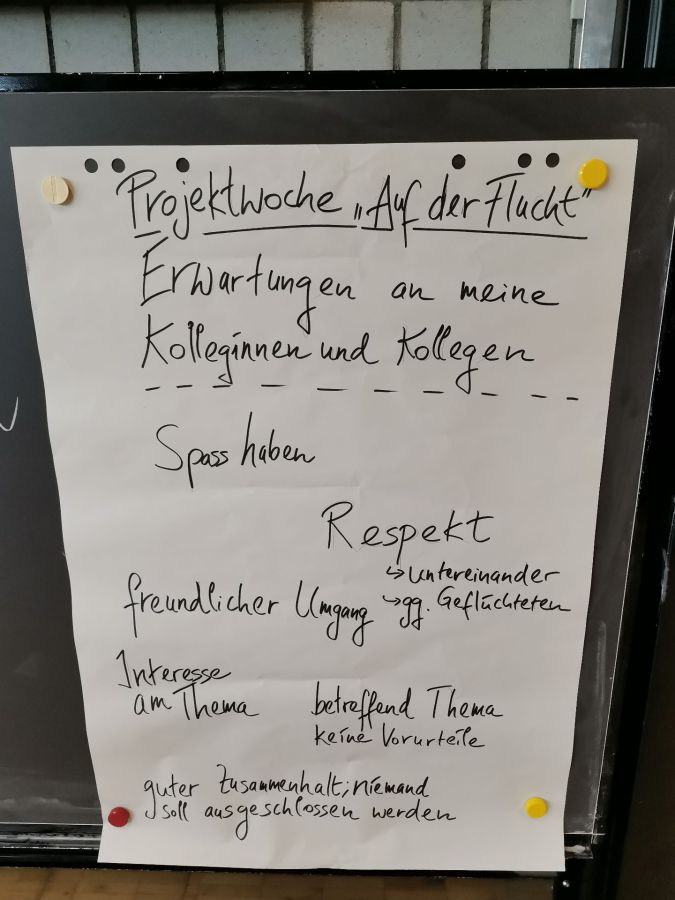 Projektwoche „Auf der Flucht"
Erwartungen an meine
Kolleginnen und Kollegen
Spass haben
Respekt
↳ untereinander
↳ gg. Geflüchteten
freundlicher Umgang
Interesse
am Thema
betreffend Thema
keine Vorurteile
guter Zusammenhalt; niemand
soll ausgeschlossen werden